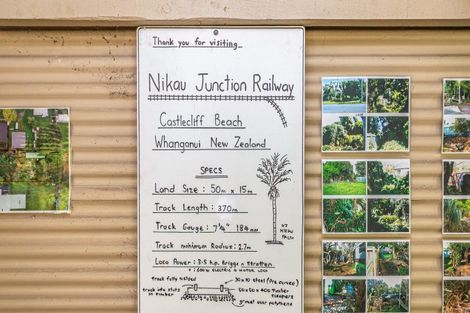 Thank you for visiting...
Nikau Junction Railway
Castlecliff Beach
Whanganui New Zealand
SPECS
Land Size : 50m x 15m
Track Length : 370m
Track Gauge : 7 1/4" 184 mm
Track minimum Radius : 2.7m
Loco Power : 3.5 h.p. Briggs n Stratton
+ 600w ELECTRIC MOTOR LOCO
NJ
NIKAU
PALM
track fully welded
30x10 steel (pre curved)
track into slots
in timber
50x50x400 timber
sleepers
gravel over polythene